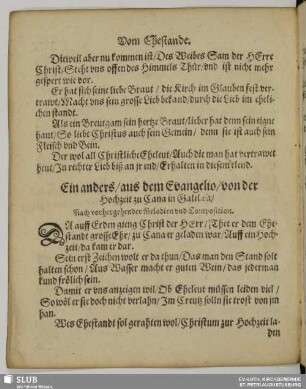 Vom Ehestande.
Dieweil aber nu kommen ist / Des Weibes Sam der HErre
Christ / Steht vns offen des Himmels Thür / vnd ist nicht mehr
gesperrt wie vor.
Er hat sich seine liebe Braut / die Kirch im Glauben fest ver-
trawt / Macht vns sein grosse Lieb bekand / durch die Lieb im ehli-
chen standt.
Als ein Breutgam sein hertze Braut / lieber hat denn sein eigne
haut / So liebt Christus auch sein Gemein / denn sie ist auch sein
Fleisch vnd Bein.
Der wol all Christliche Eheleut / Auch die man hat vertrawet
heut / In rechter Lieb biß an jr end / Erhalten in diesem elend.
Ein anders / aus dem Evangelio / von der
Hochzeit zu Cana in Galilæa /
Nach vorhergehender Melodien vnd Composition.
DA auff Erden gieng Christ der HErr / Thet er dem Ehe-
standt grosse Ehr / zu Cana er geladen war / Auff ein Hoch-
zeit da kam er dar.
Sein erst Zeichen wolt er da thun / Das man den Stand solt
halten schon / Aus Wasser macht er guten Wein / das jederman
kund frölich sein.
Damit er vns anzeigen wil / Ob Eheleut müssen leiden viel /
So wöl er sie doch nicht verlahn / Im Creutz solln sie trost von jm
han.
Wes Ehestandt sol gerahten wol / Christum zur Hochzeit la-
den
SLUB
Wir führen Wissen.
EV.-LUTH. KIRCHGEMEINDE
ST. PETRI AUGUSTUSBURG